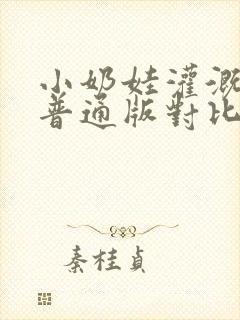 小奶娃灌溉
普通版對比
秦桂貞